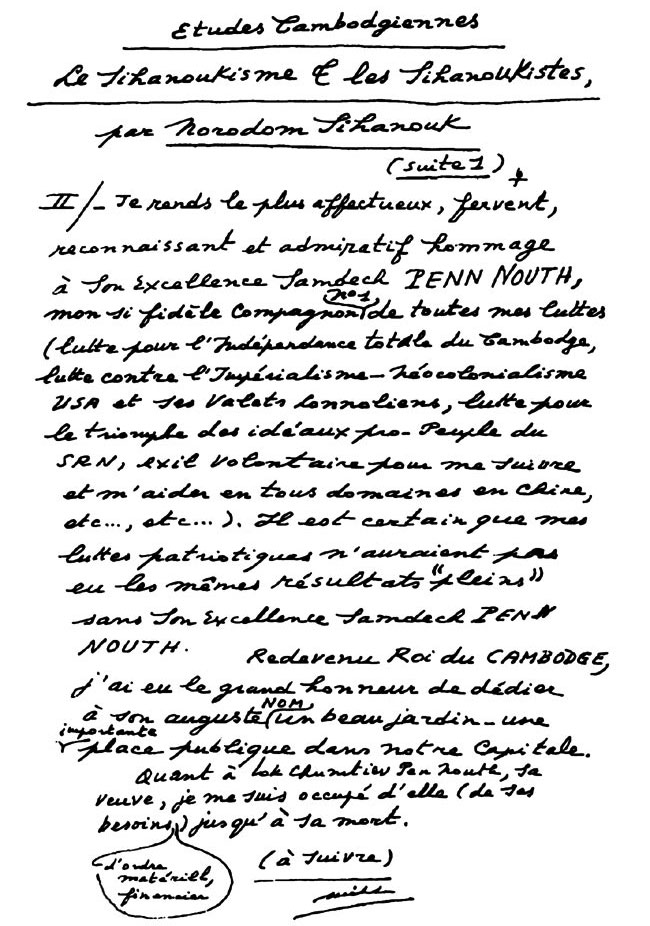 Etudes Cambodgiennes
Le Sihanoukisme & les Sihanoukistes,
par Norodom Sihanouk
(suite 1)
II/- Je rends le plus affectueux, fervent,
reconnaissant et admiratif hommage
à Son Excellence Samdech PENN NOUTH,
mon si fidèle Compagnon n°1, de toutes mes luttes
(lutte pour l'Indépendance totale du Cambodge,
lutte contre l'Impérialisme-néocolonialisme
USA et ses Valets lonnoliens, lutte pour
le triomphe des idéaux pro-Peuple du
SRN, exil volontaire pour me suivre
et m'aider en tous domaines en Chine,
etc..., etc...). Il est certain que mes
luttes patriotiques n'auraient pas
eu les mêmes résultats "pleins"
sans Son Excellence Samdech PENN
NOUTH.
Redevenu Roi du CAMBODGE,
j'ai eu le grand honneur de dédier
à son auguste NOM un beau jardin - une
importante place publique dans notre Capitale.
Quant à Lok Chumtiev Pen Nouth, sa
veuve, je me suis occupé d'elle (de ses
besoins) jusqu'à sa mort.
d'ordre
matériel,
financier
(à suivre)